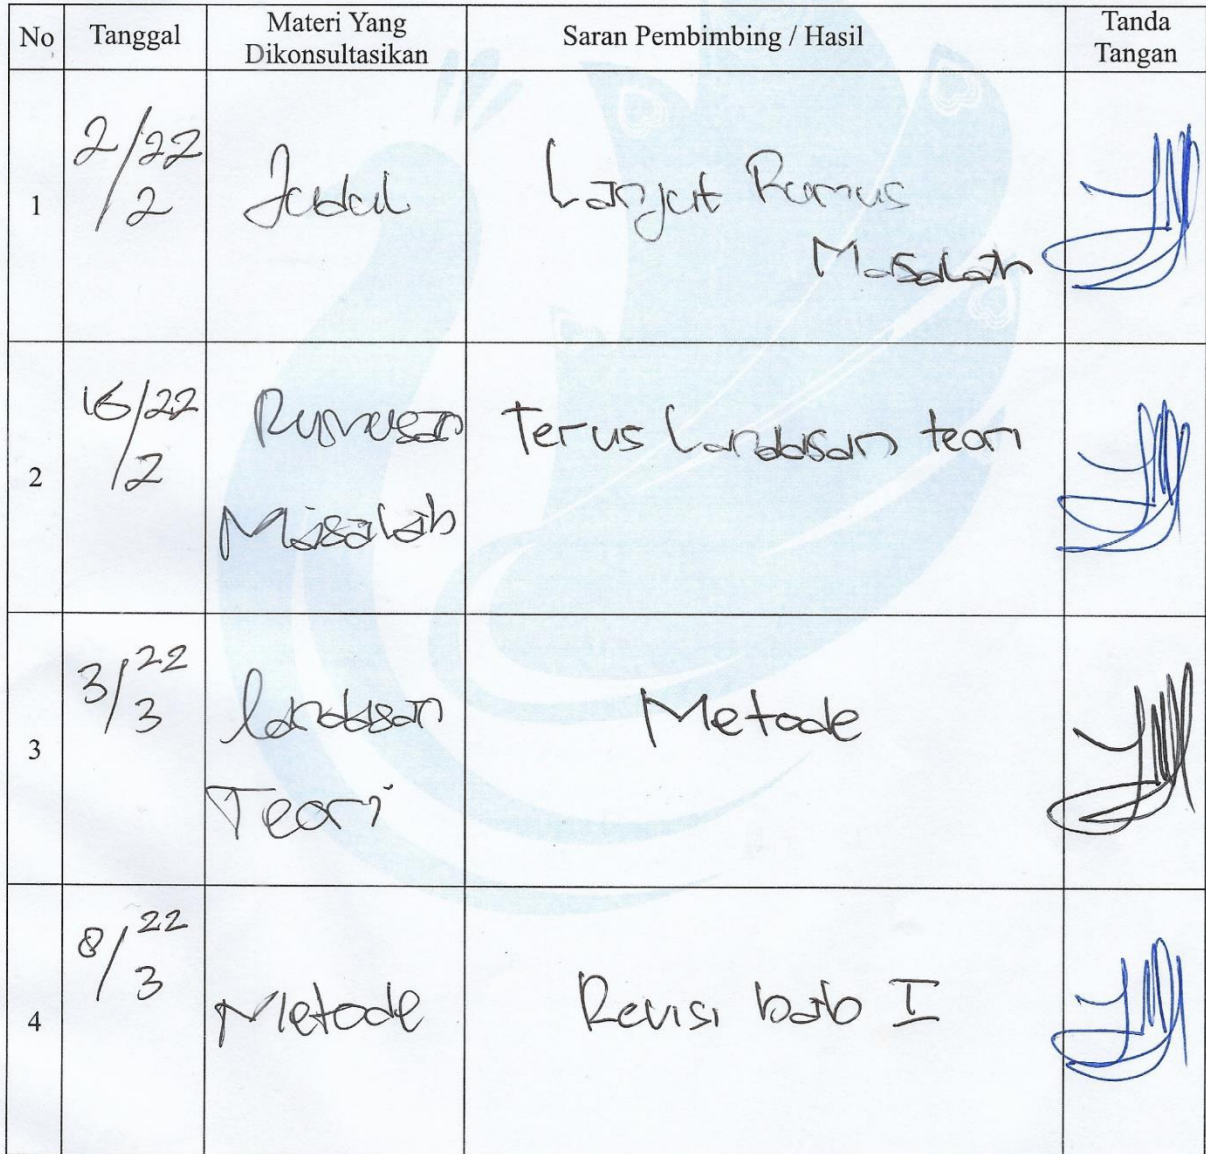 No Tanggal Materi Yang Dikonsultasikan Saran Pembimbing / Hasil Tanda Tangan
1 2/2 22 Judul Lanjut Rumus
Masalah
2 16/2 22 Rumusan Terus Landasan teori
Masalah
3 3/3 22 Landasan Metode
Teori
4 8/3 22 Metode Revisi bab I